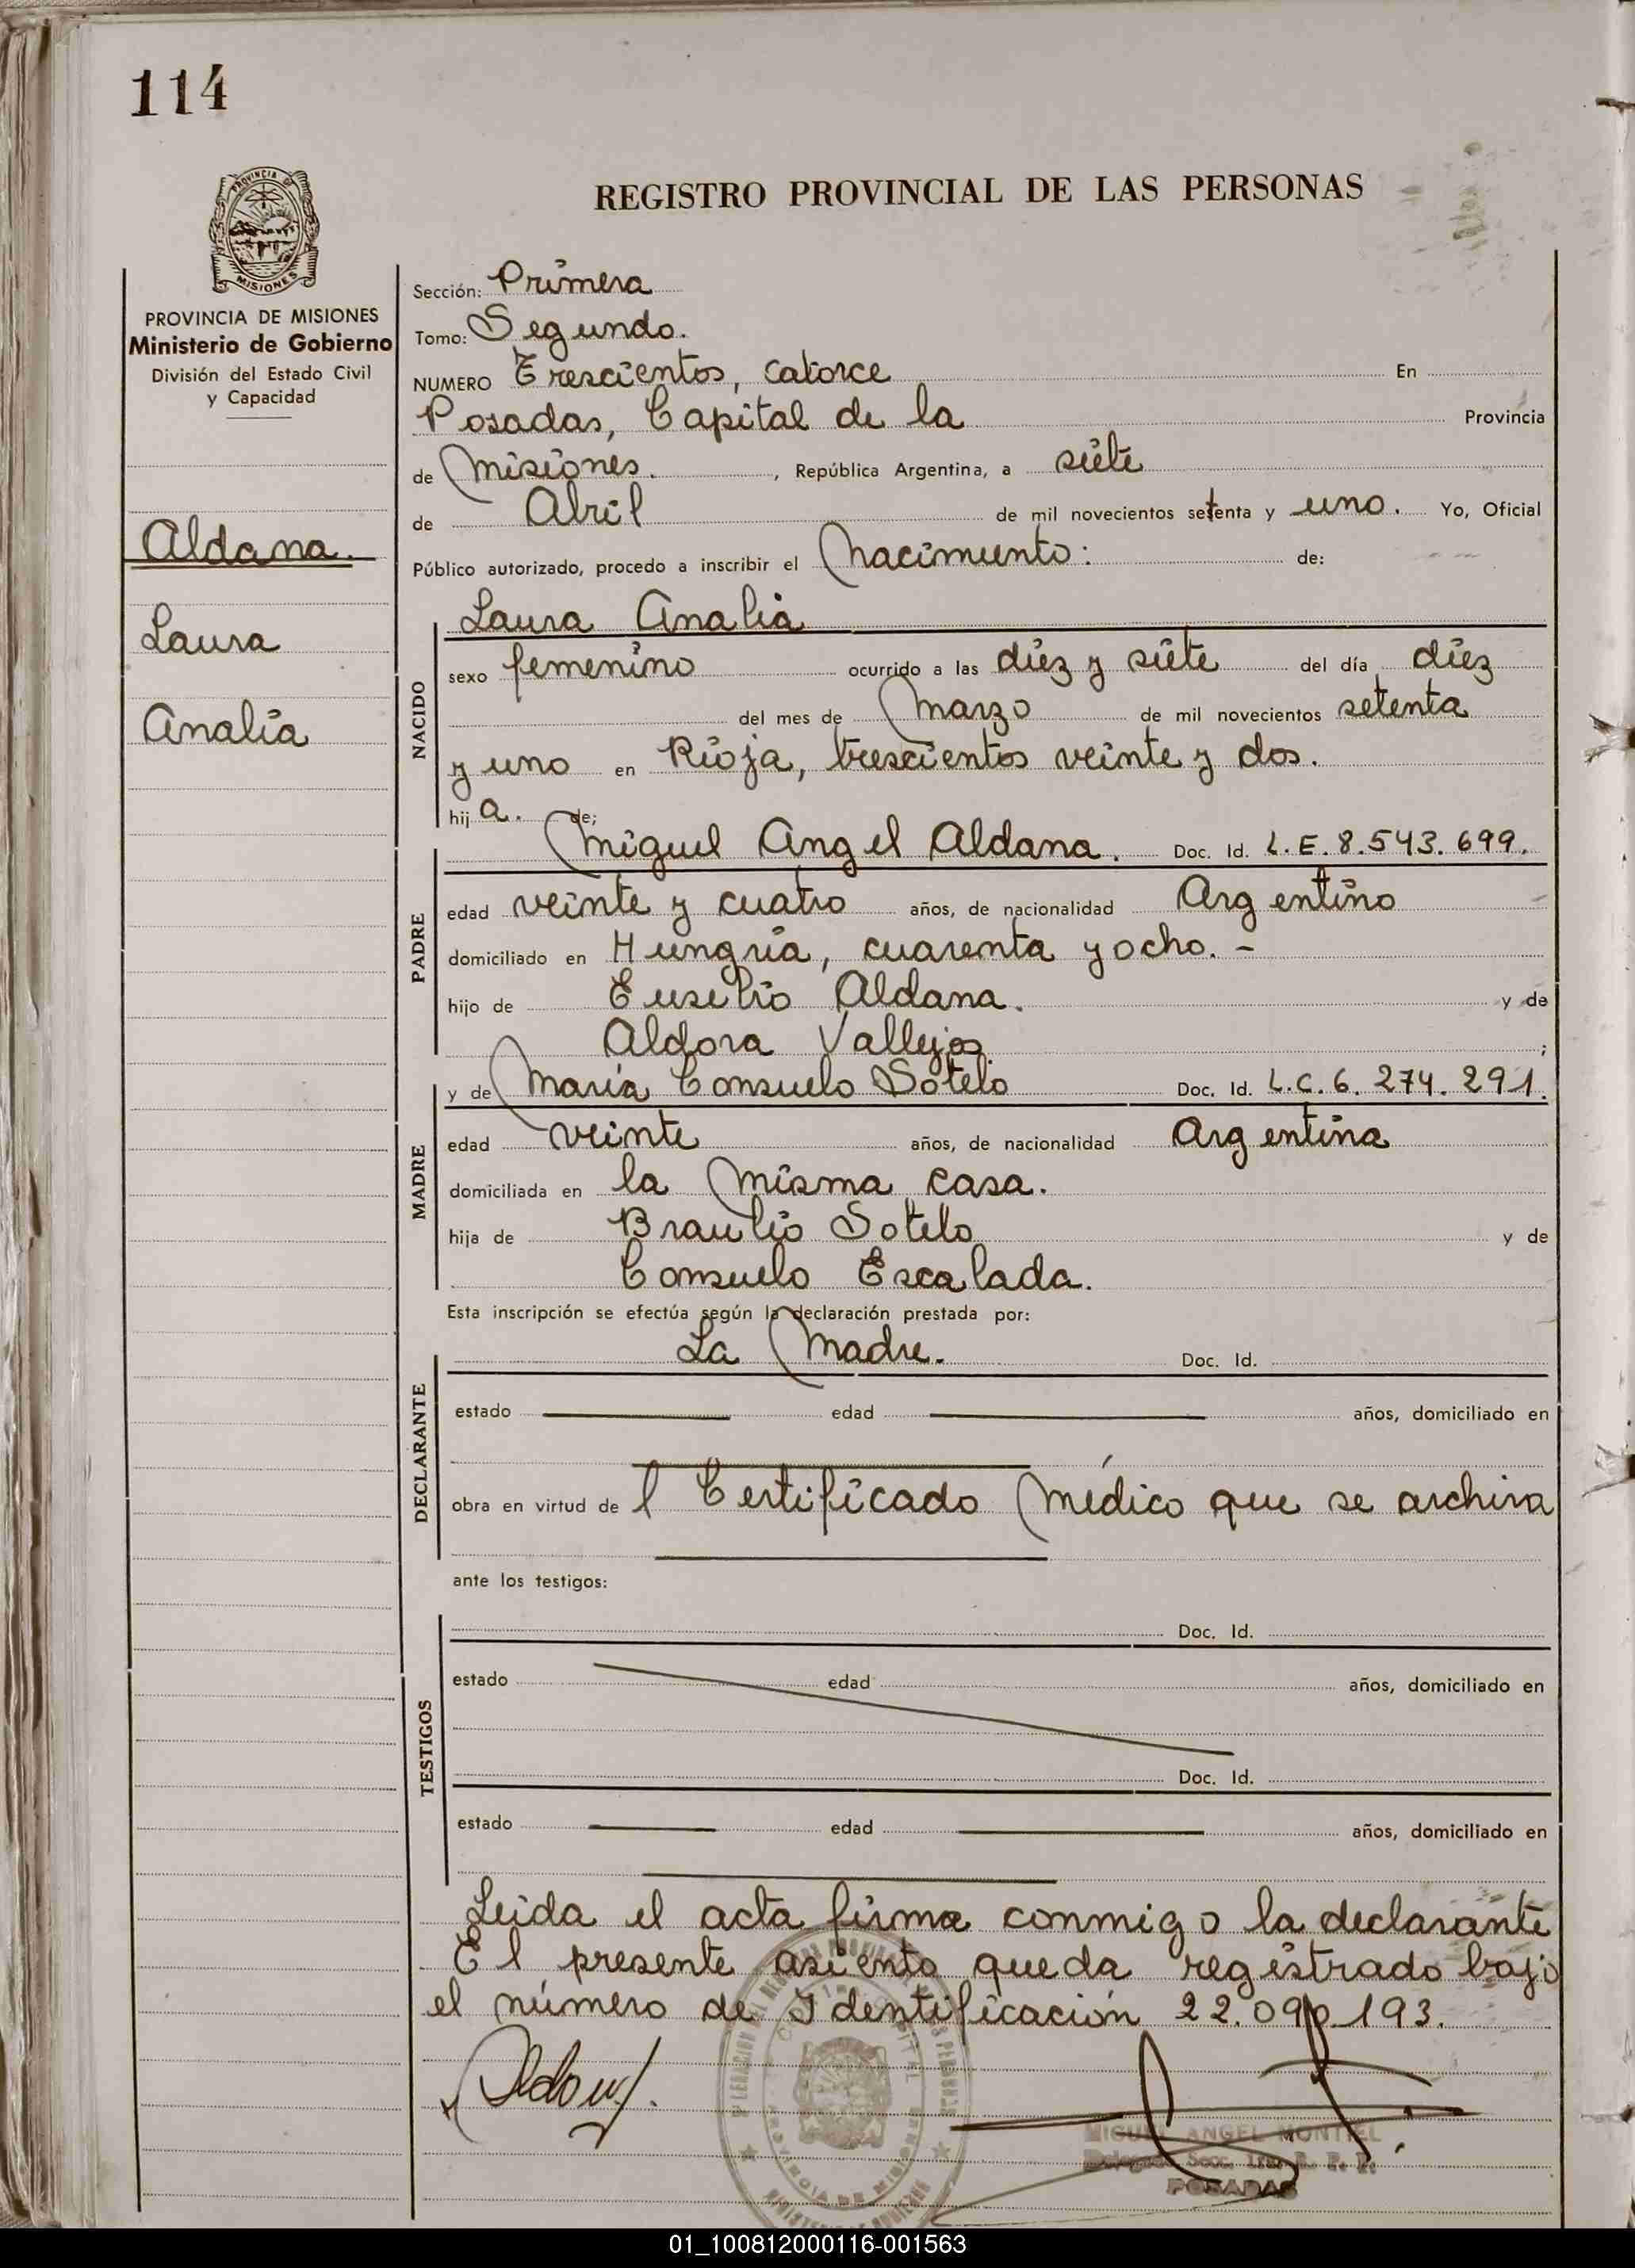 114
PROVINCIA DE
MISIONES
REGISTRO PROVINCIAL DE LAS PERSONAS
PROVINCIA DE MISIONES
Ministerio de Gobierno
División del Estado Civil
y Capacidad
Aldana.
Laura
Analía
Sección: Primera
Tomo: Segundo.
NUMERO Trescientos, catorce En
Posadas, Capital de la Provincia
de Misiones. , República Argentina, a siete
de Abril de mil novecientos setenta y uno. Yo, Oficial
Público autorizado, procedo a inscribir el Nacimiento: de:
Laura Analia
NACIDO
sexo femenino ocurrido a las diez y siete del día diez
del mes de Marzo de mil novecientos setenta
y uno en Rioja, trescientos veinte y dos.
hij a. de;
Miguel Angel Aldana. Doc. Id. L.E. 8.543.699.
PADRE
edad veinte y cuatro años, de nacionalidad Argentino
domiciliado en Hungria, cuarenta y ocho. -
hijo de Eusebio Aldana. y de
Aldora Vallejos. ;
y de María Consuelo Sotelo Doc. Id. L.C. 6.274.291.
MADRE
edad veinte años, de nacionalidad Argentina
domiciliada en la misma casa.
hija de Braulio Sotelo y de
Consuelo Escalada.
Esta inscripción se efectúa según la declaración prestada por:
La Madre. Doc. Id.
DECLARANTE
estado edad años, domiciliado en
obra en virtud de l Certificado Médico que se archiva
ante los testigos:
Doc. Id.
TESTIGOS
estado edad años, domiciliado en
Doc. Id.
estado edad años, domiciliado en
Leida el acta firma conmigo la declarante
El presente asiento queda registrado bajo
el número de Identificación 22.090.193.
MIGUEL ANGEL MONTIEL
POSADAS
01_100812000116-001563